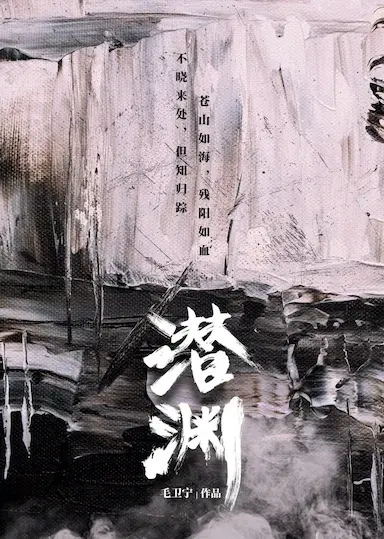 苍山如海，残阳如血
不晓来处，但知归踪
潜渊
毛卫宁 | 作品